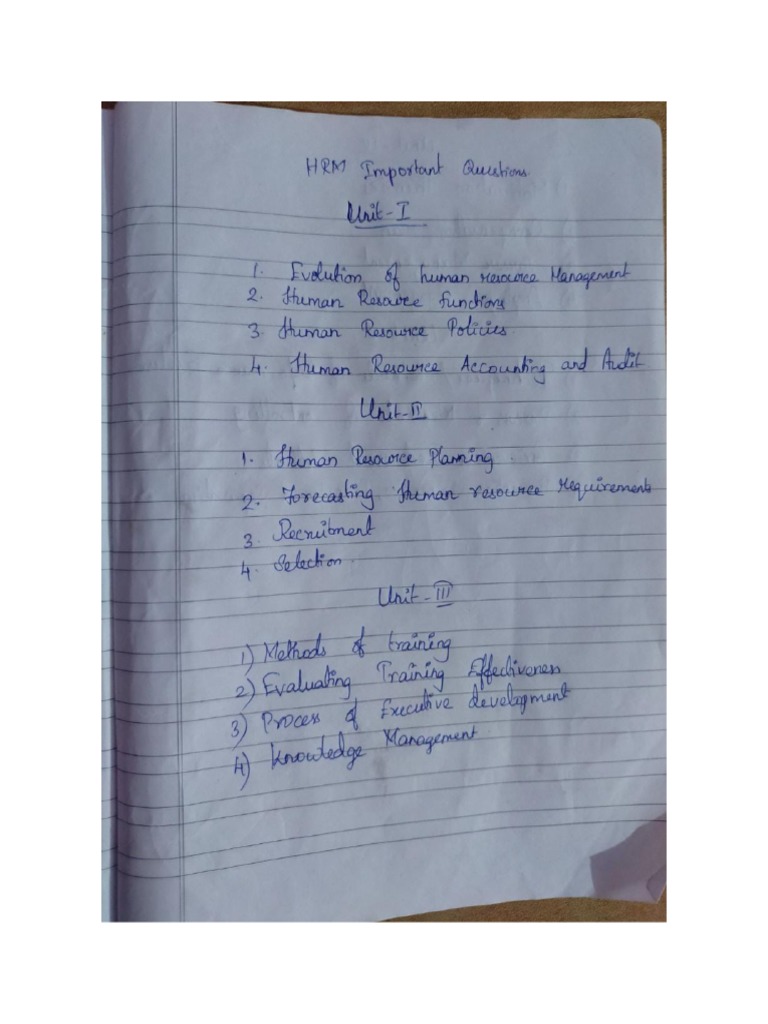 HRM Important Questions
Unit-I
1. Evolution of human resource Management
2. Human Resource functions
3. Human Resource Policies
4. Human Resource Accounting and Audit
Unit-II
1. Human Resource Planning
2. Forecasting Human resource Requirements
3. Recruitment
4. Selection
Unit-III
1) Methods of training
2) Evaluating Training Effectiveness
3) Process of Executive development
4) Knowledge Management